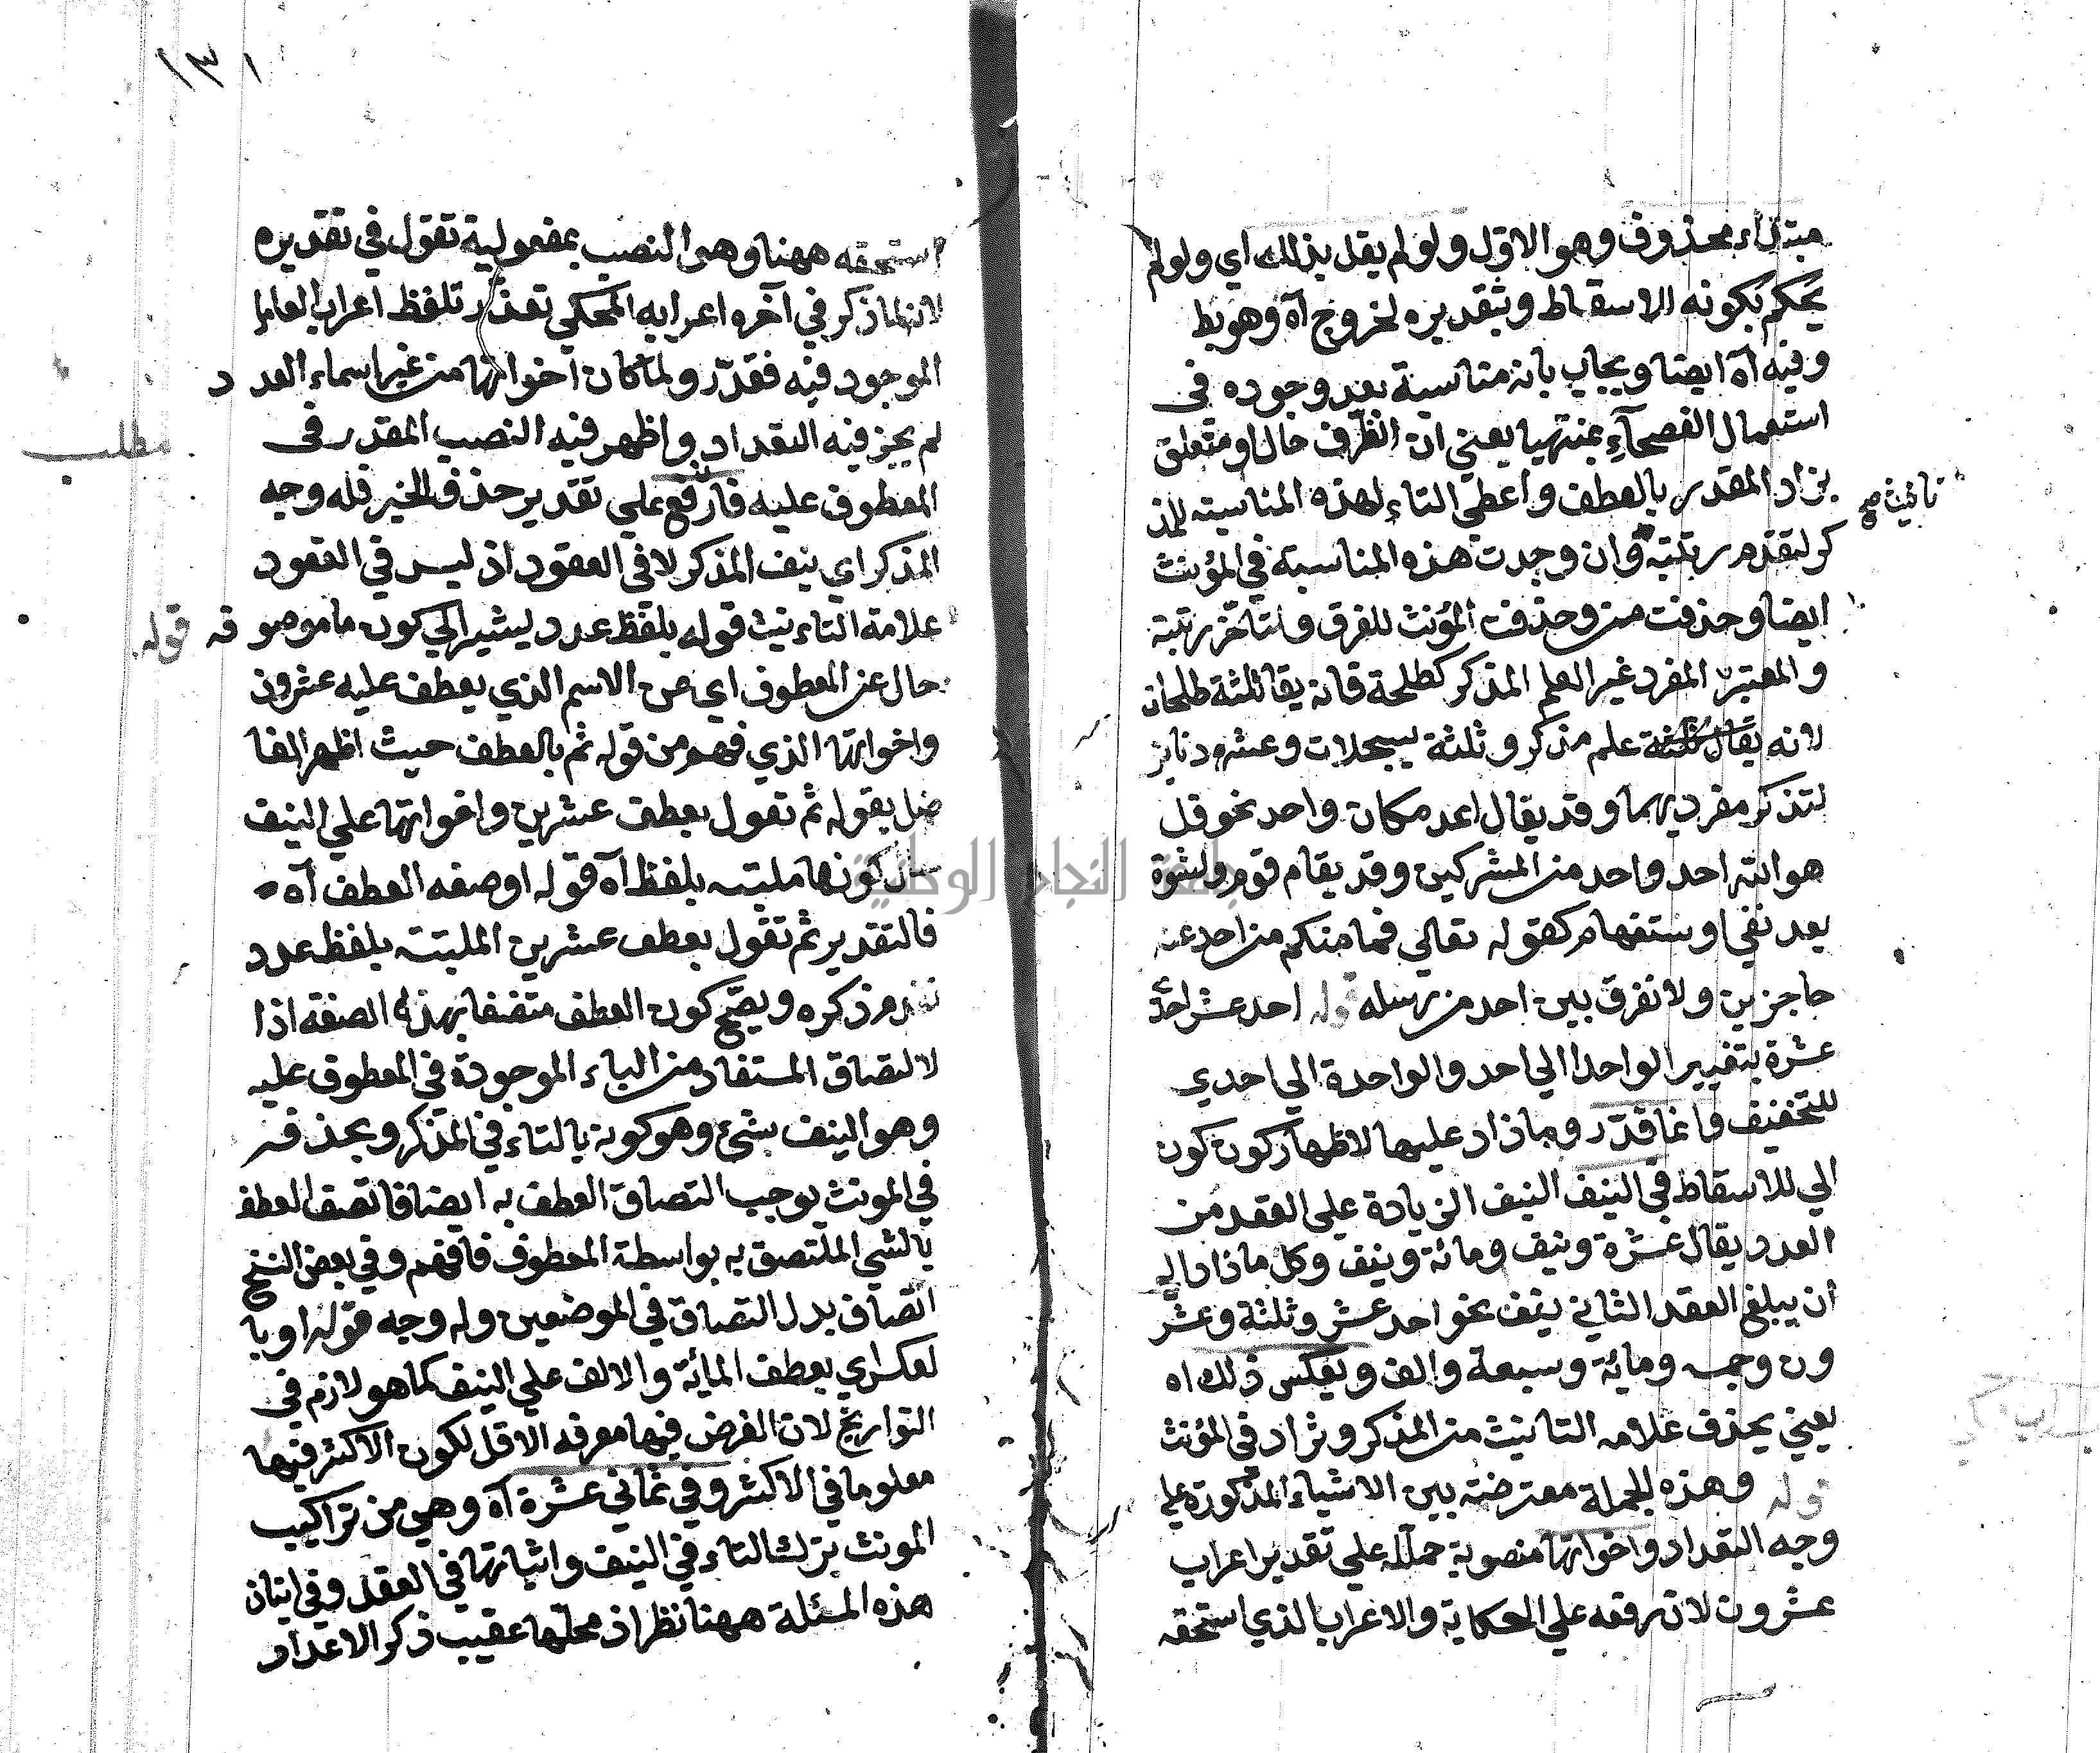 مبتداء محذوف وهو الاول ولو لم يقل بذلك اي ولو لم
يحكم بكونه الاسقاط وبتقديره لخروج آه وهو بط
وفيه آه ايضا ويجاب بانه مناسبة بعد وجوده في
استعمال الفصحآء بمنتهيا يعني ان الظرف حال او متعلق
بزاد المقدر بالعطف واعطي التاء لهذه المناسبة للمذ
تانيث صح
كر لتقدم رتبته وان وجدت هذه المناسبة في المؤنث
ايضا وحذفت من وحذفت المؤنث للفرق ولتاخر رتبته
والمعتبر المفرد غير العلم المذكر كطلحة فانه يقا ثلثة طلحات
لانه يقال علم مذكر وثلثة سجلات وعشر دنانير
لتذكر مفرديهما وقد يقال احد مكان واحد نحو قل
هو الله احد واحد من المشركين وقد يقام قوم ونسوة
بعد نفي او ستفهام كقوله تعالي فما منكم من احد عنه
حاجزين ولا نفرق بين احد من رسله قوله احد عشر احدي
عشرة بتغيير الواحد الي احد والواحدة الي احدي
للتخفيف وانما قدر وما زاد عليها لاظهار كون كون
الي للاسقاط في النيف النيف الزيادة علي العقد من
العدد يقال عشرة ونيف ومائة ونيف وكل ما زاد الي
ان يبلغ العقد الثاني نيف نحو احد عشر وثلثة وعشر
ون ومائة وسبعة والف وبعكس ذلك اه
يعني يحذف علامه التانيث من المذكر وتزاد في المؤنث
قوله وهذه الجملة معترضته بين الاشياء المذكورة علي
وجه التعداد واخواتها منصوبة حملاله علي تقدير اعراب
عشرون لان رفعه علي الحكاية والاعراب الذي استحقه
١٣١
استحقه ههنا وهي النصب بمفعولية تقول في تقديره
لانه لما ذكر في آخره اعرابه المحكي تعذر تلفظ اعراب العامل
الموجود فيه فقدر ولما كان اخواتها من غير اسماء العدد
مطلب
لم يجز فيه التعداد واظهر فيه النصب المقدر في
المعطوف عليه فارفع علي تقدير حذف الخبر فله وجه
المذكر اي نيف المذكر لا في العقود اذ ليس في العقود
علامة التاءنيث قوله بلفظ عدد ليشير الي كون ما موصوفه
قوله
حال عن المعطوف اي عن الاسم الذي يعطف عليه عشرون
واخواتها الذي فهم من قوله ثم بالعطف حيث اظهر الفا
ضل بقوله ثم تقول بعطف عشرين واخواتها علي النيف
حال كونها ملتبسه بلفظ آه قوله او صفه العطف آه
فالتقدير ثم تقول بعطف عشرين الملتبسه بلفظ عدد
تقدم ذكره ويصح كون العطف متصفا بهذه الصفة اذا
لالتصاق المستفاد من الباء الموجودة في المعطوف عليه
وهو النيف بشيء وهو كونه بالتاء في المذكر وبحذفه
في المونث يوجب التصاق العطف به ايضا فاتصف العطف
بالشي الملتصق به بواسطة المعطوف فافهم وفي بعض النسخ
اتصاف بدل التصاق في الموضعين وله وجه قوله او با
لعكس اي بعطف المائة والالف علي النيف كما هو لازم في
التواريخ لان الغرض فيها معرفه الاقل لكون الاكثر فيها
معلوما في الاكثر وفي ثماني عشرة آه وهي من تراكيب
المونث بترك التاء في النيف واثباتها في العقد وفي اتيان
هذه المسئلة ههنا نظر اذ محلها عقيب ذكر الاعداد
جامعة النجاح الوطنية